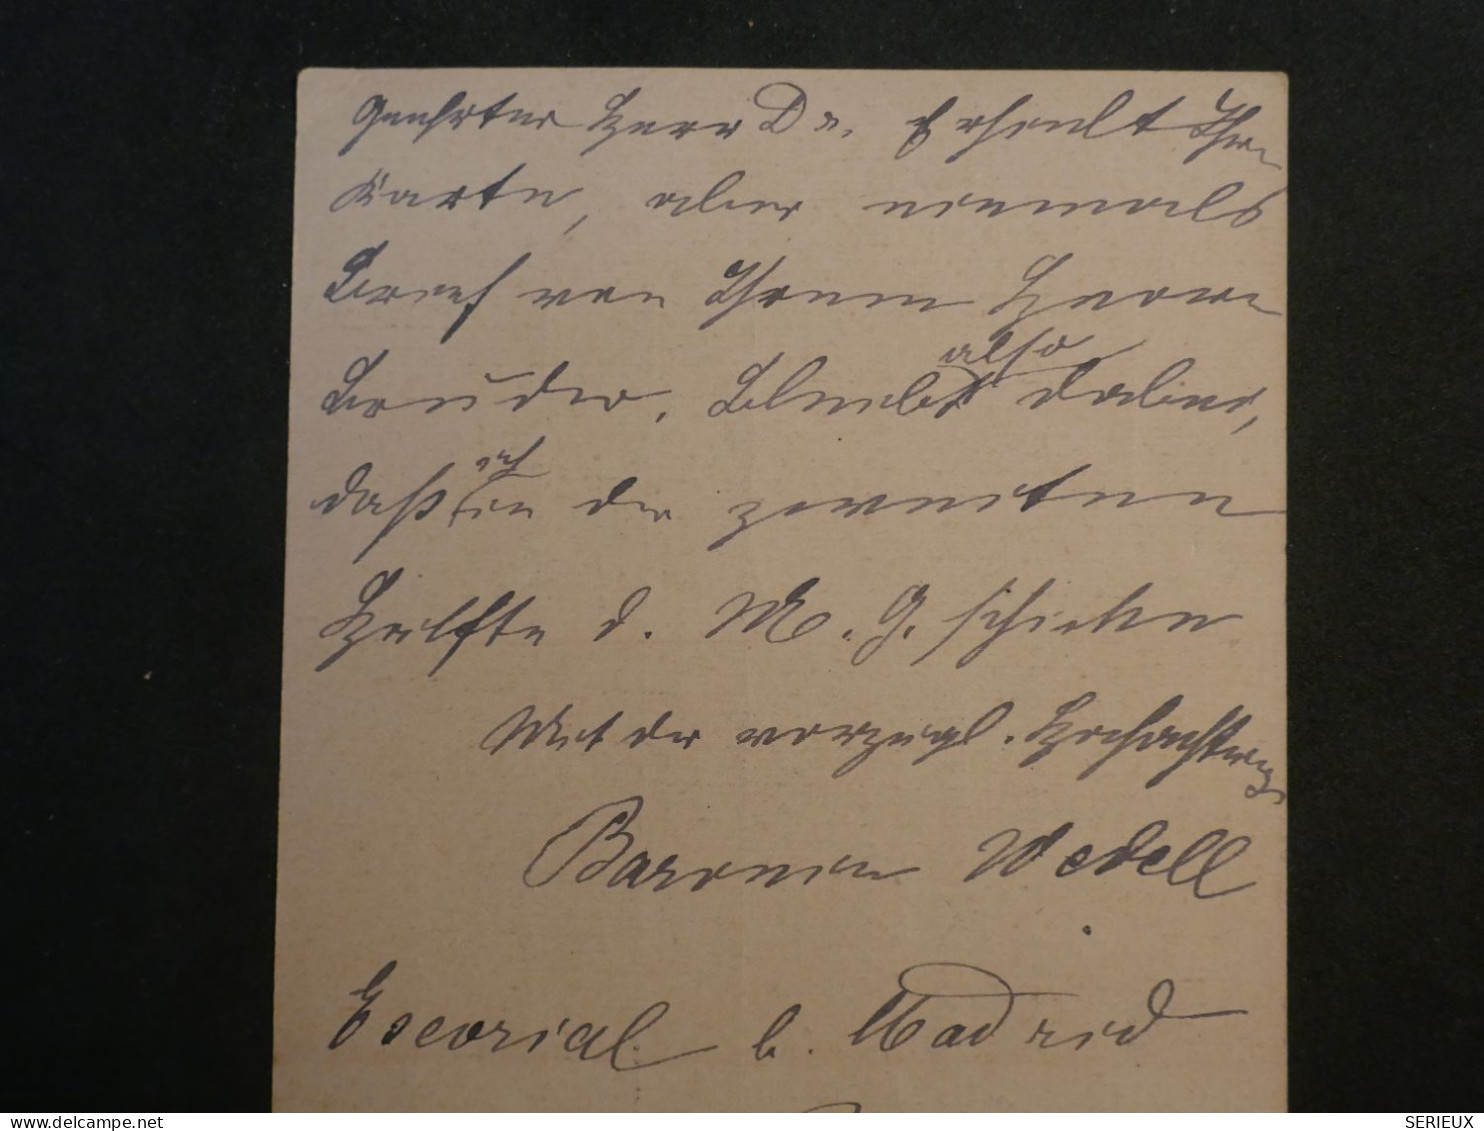 Geehrter Herr Dr. Erhielt Ihre
Karte, aber niemals
Brief von Ihrem Herrn
Bruder. Bleibt also dabei,
daß ich in der zweiten
Hälfte d. M. G. schicke
Mit der vorzügl. Hochachtung
Baronin Wedell
Escorial b. Madrid
DELCAMPE.NET
SERIEUX